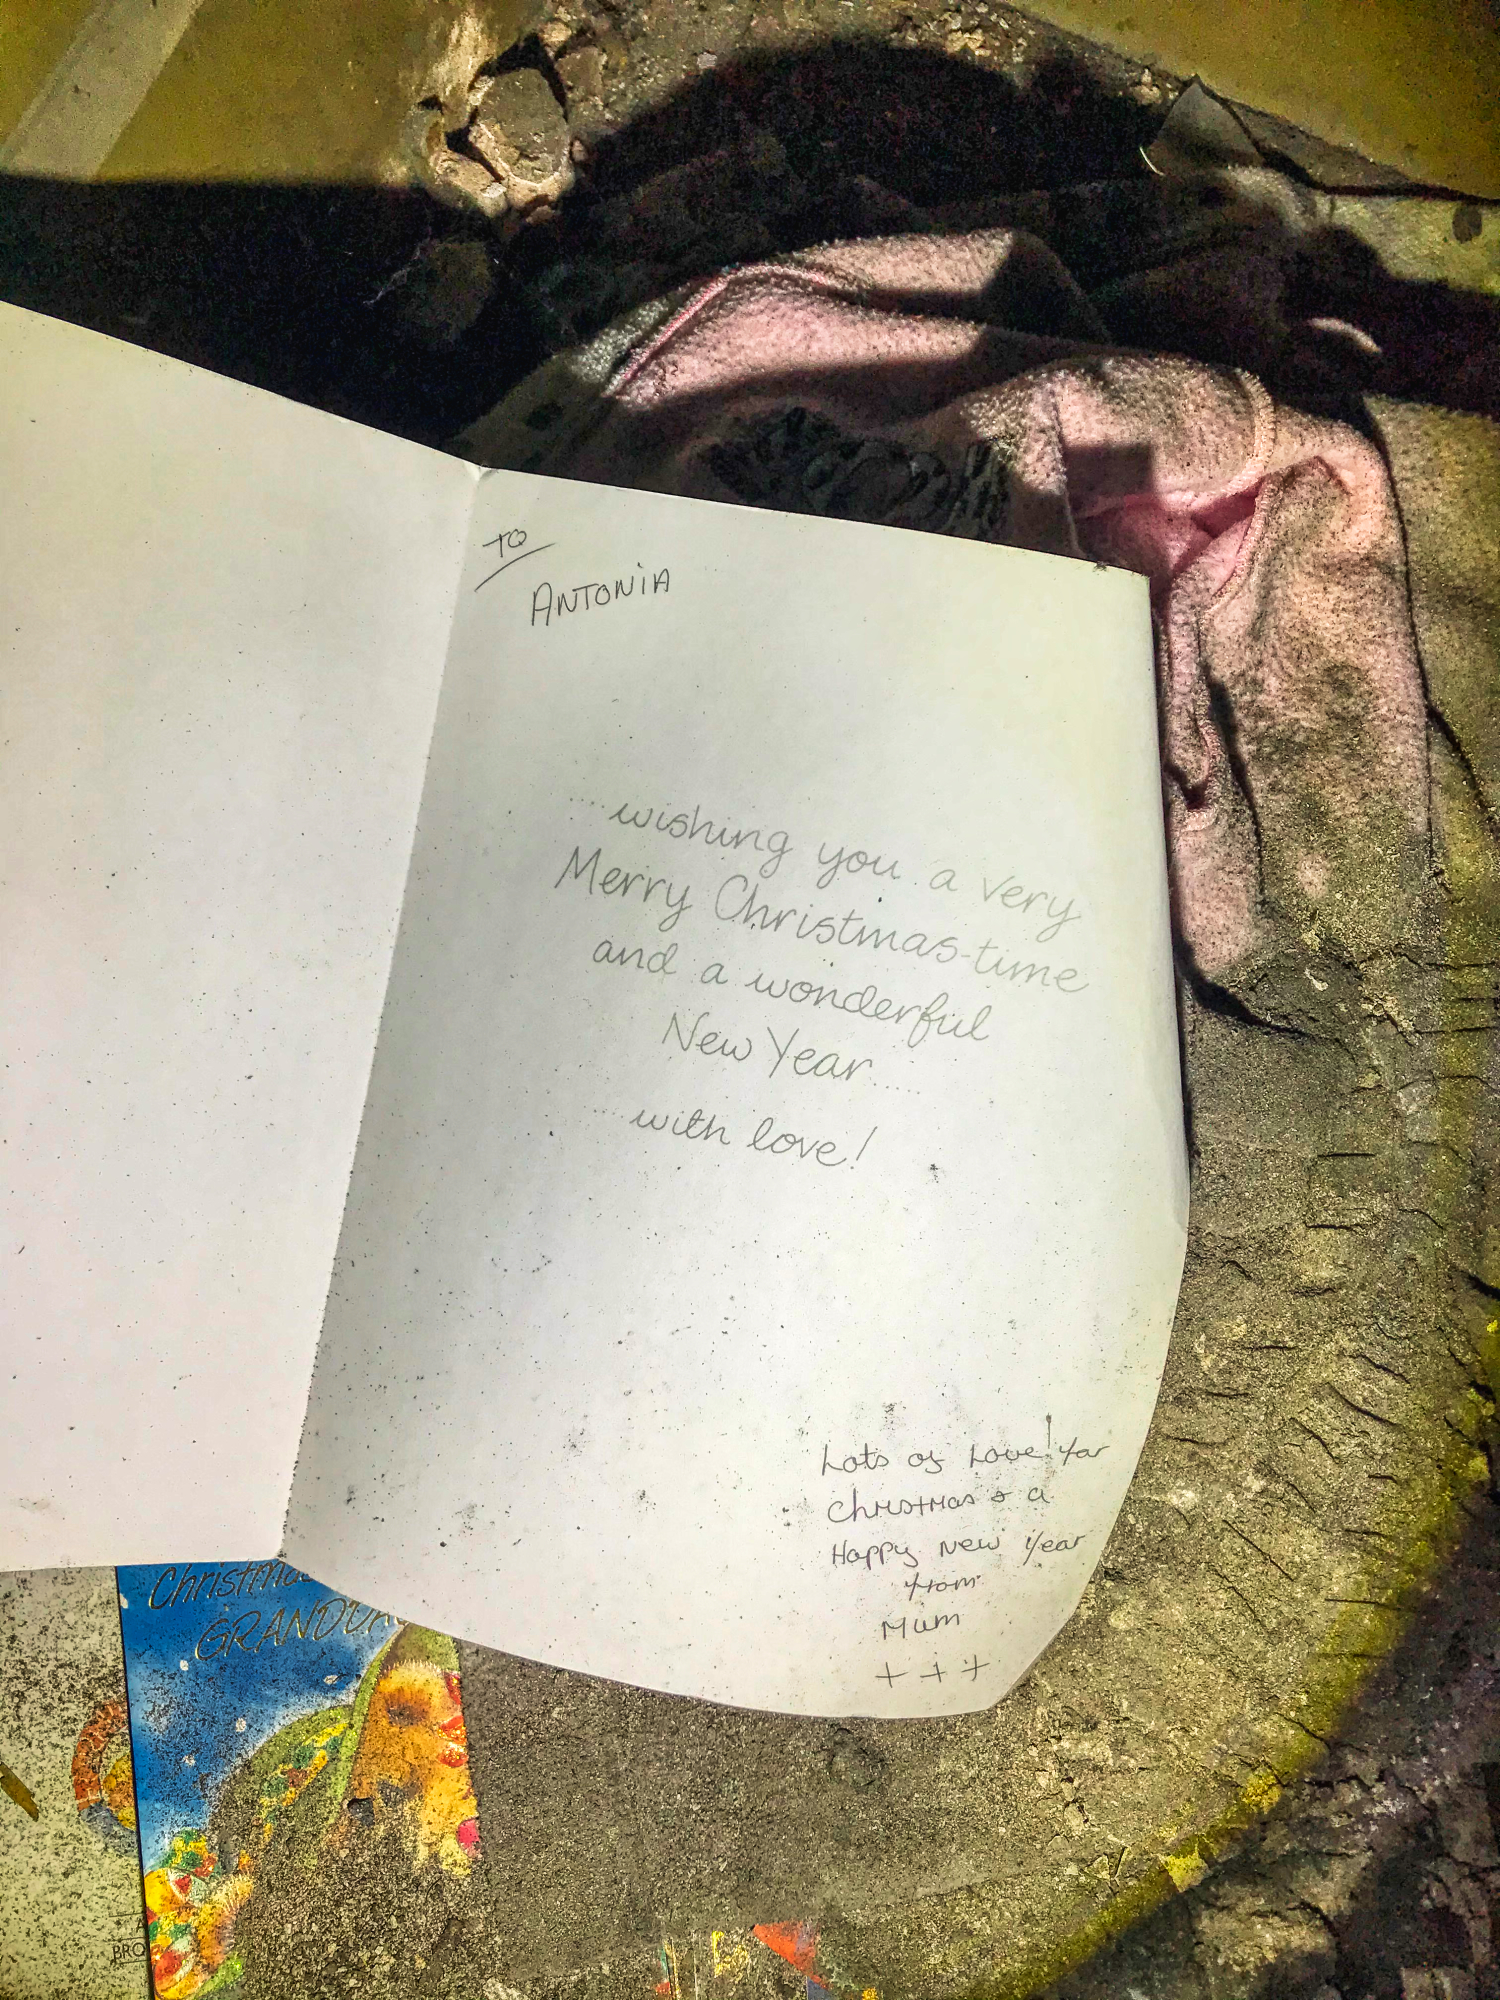 TO
ANTONIA
....wishing you a very
Merry Christmas-time
and a wonderful
New Year.....
....with love!
Lots of Love! for
Christmas & a
Happy New Year
from
Mum
+ + +
Christmas
GRANDDA
BRO